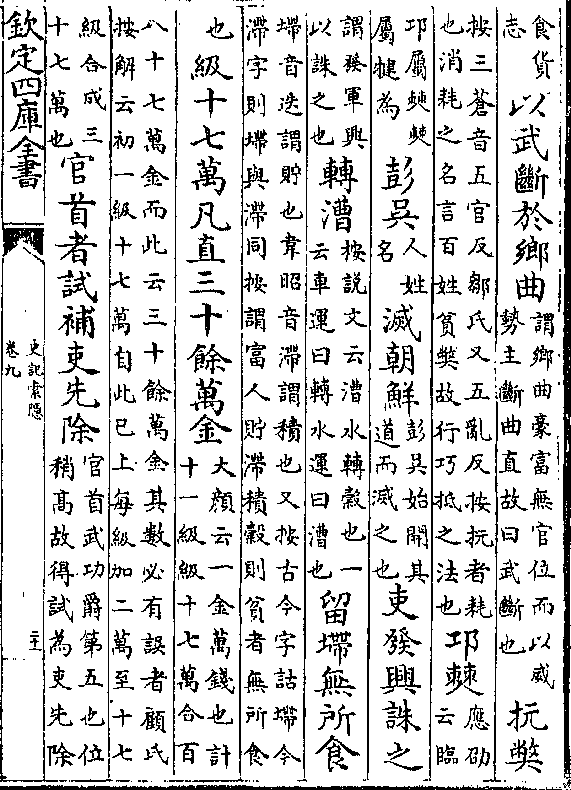 食貨
志
以武斷於鄉曲
謂鄉曲豪富無官位而以威
勢主斷曲直故曰武斷也
抏獘
按三蒼音五官反鄒氏又五亂反按抏者耗
也消耗之名言百姓貧獘故行巧抵之法也
邛僰
應劭
云臨
邛屬僰僰
屬犍為
彭吳
人姓
名
滅朝鮮
彭吳始開其
道而滅之也
吏發興誅之
謂發軍興
以誅之也
轉漕
按說文云漕水轉糓也一
云車運曰轉水運曰漕也
留墆無所食
墆音迭謂貯也韋昭音滯謂積也又按古今字詁墆今
滯字則墆與滯同按謂富人貯滯積穀則貧者無所食
也
級十七萬凡直三十餘萬金
大顔云一金萬錢也計
十一級級十七萬合百
八十七萬金而此云三十餘萬金其數必有誤者顧氏
按解云初一級十七萬自此已上每級加二萬至十七
級合成三
十七萬也
官首者試補吏先除
官首武功爵第五也位
稍髙故得試為吏先除
欽定四庫全書
史記索隱
卷九